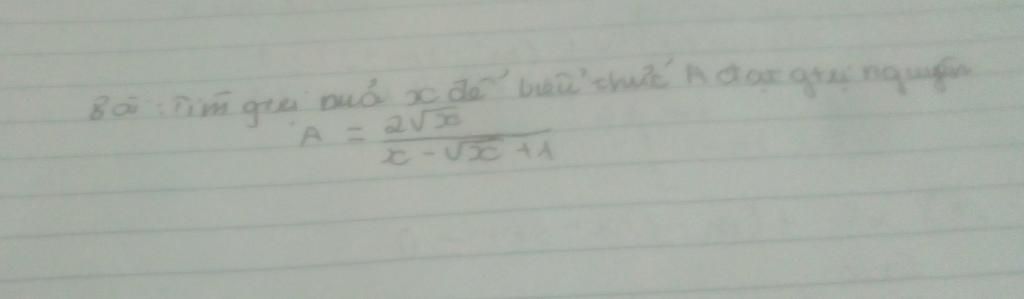 Bài: Tìm giá trị của x để biểu thức A đạt giá trị nguyên
A = 2√x / (x - √x + 1)